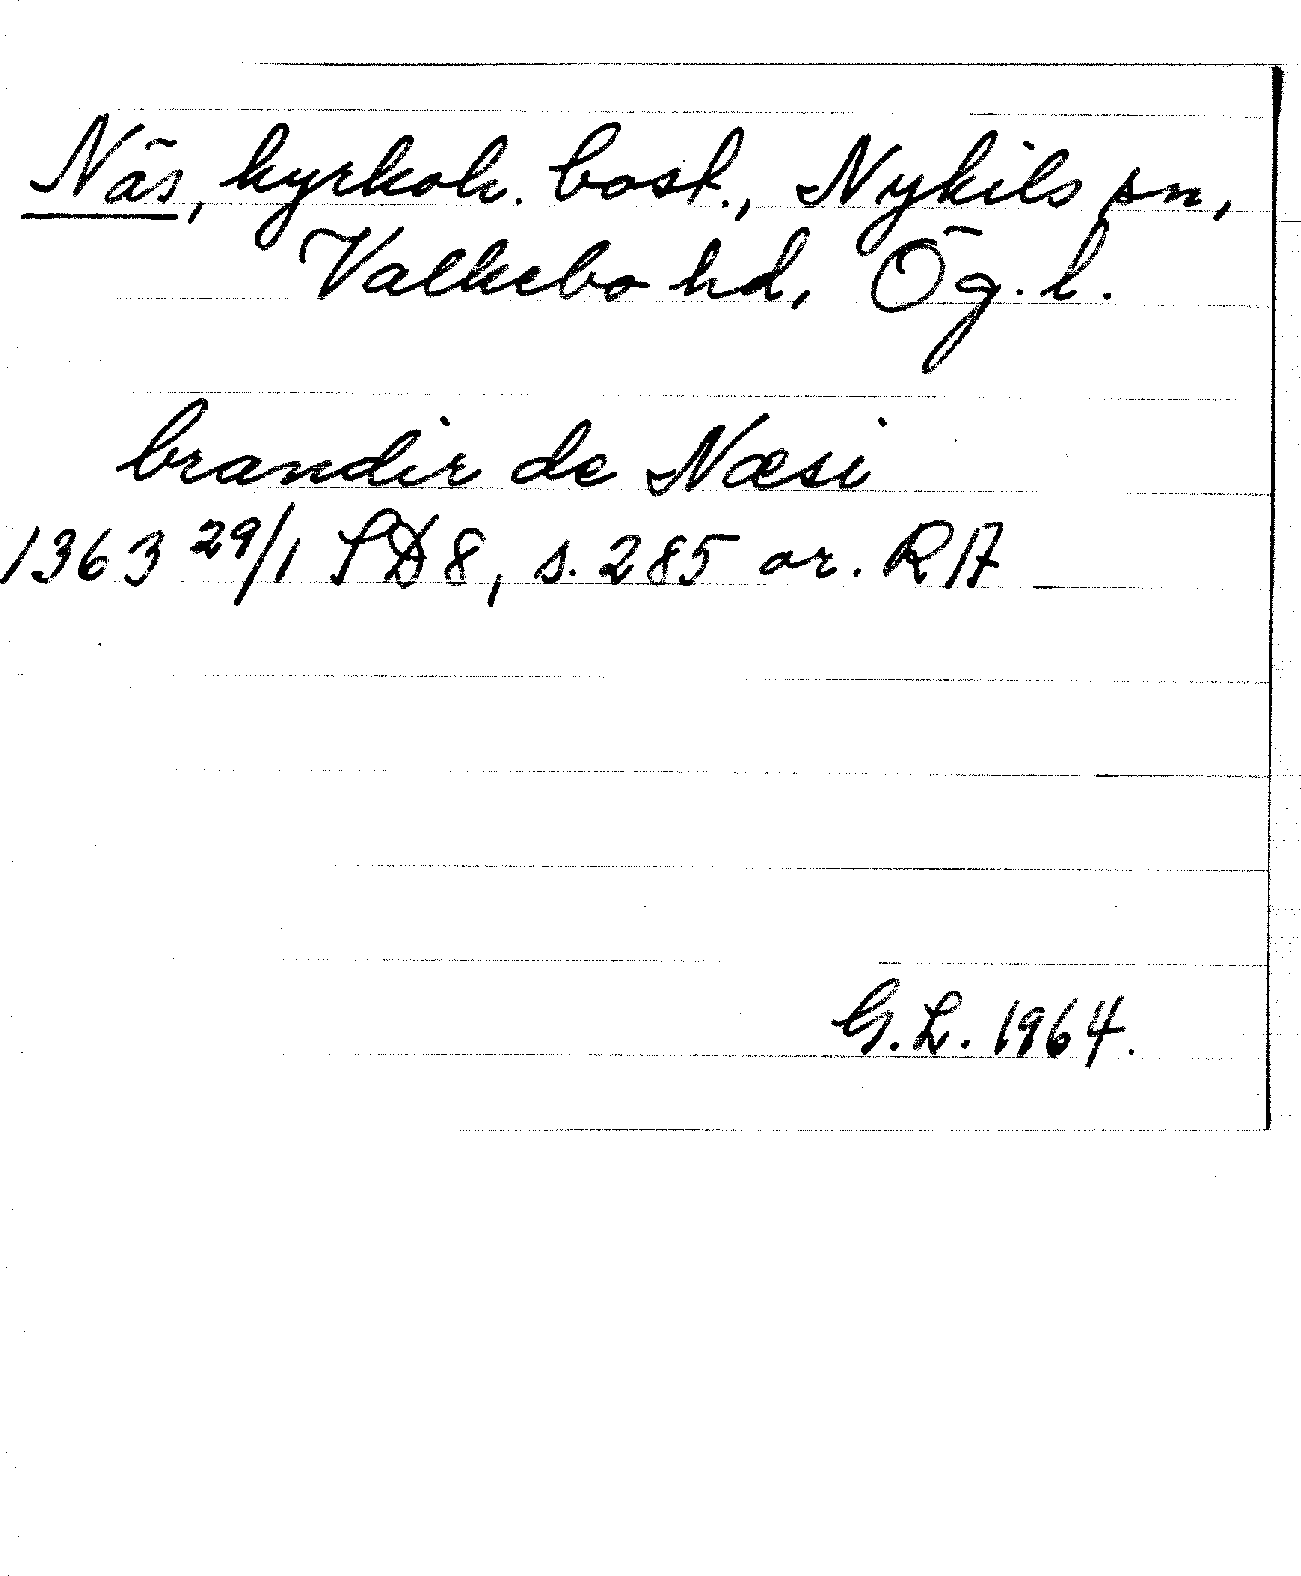 Näs, kyrkoh. bost., Nykils sn,
Valkebo hd, Ög. l.
brandir de Næsi
1363 29/1 SD8, s. 285 or. RA
G.L. 1964.